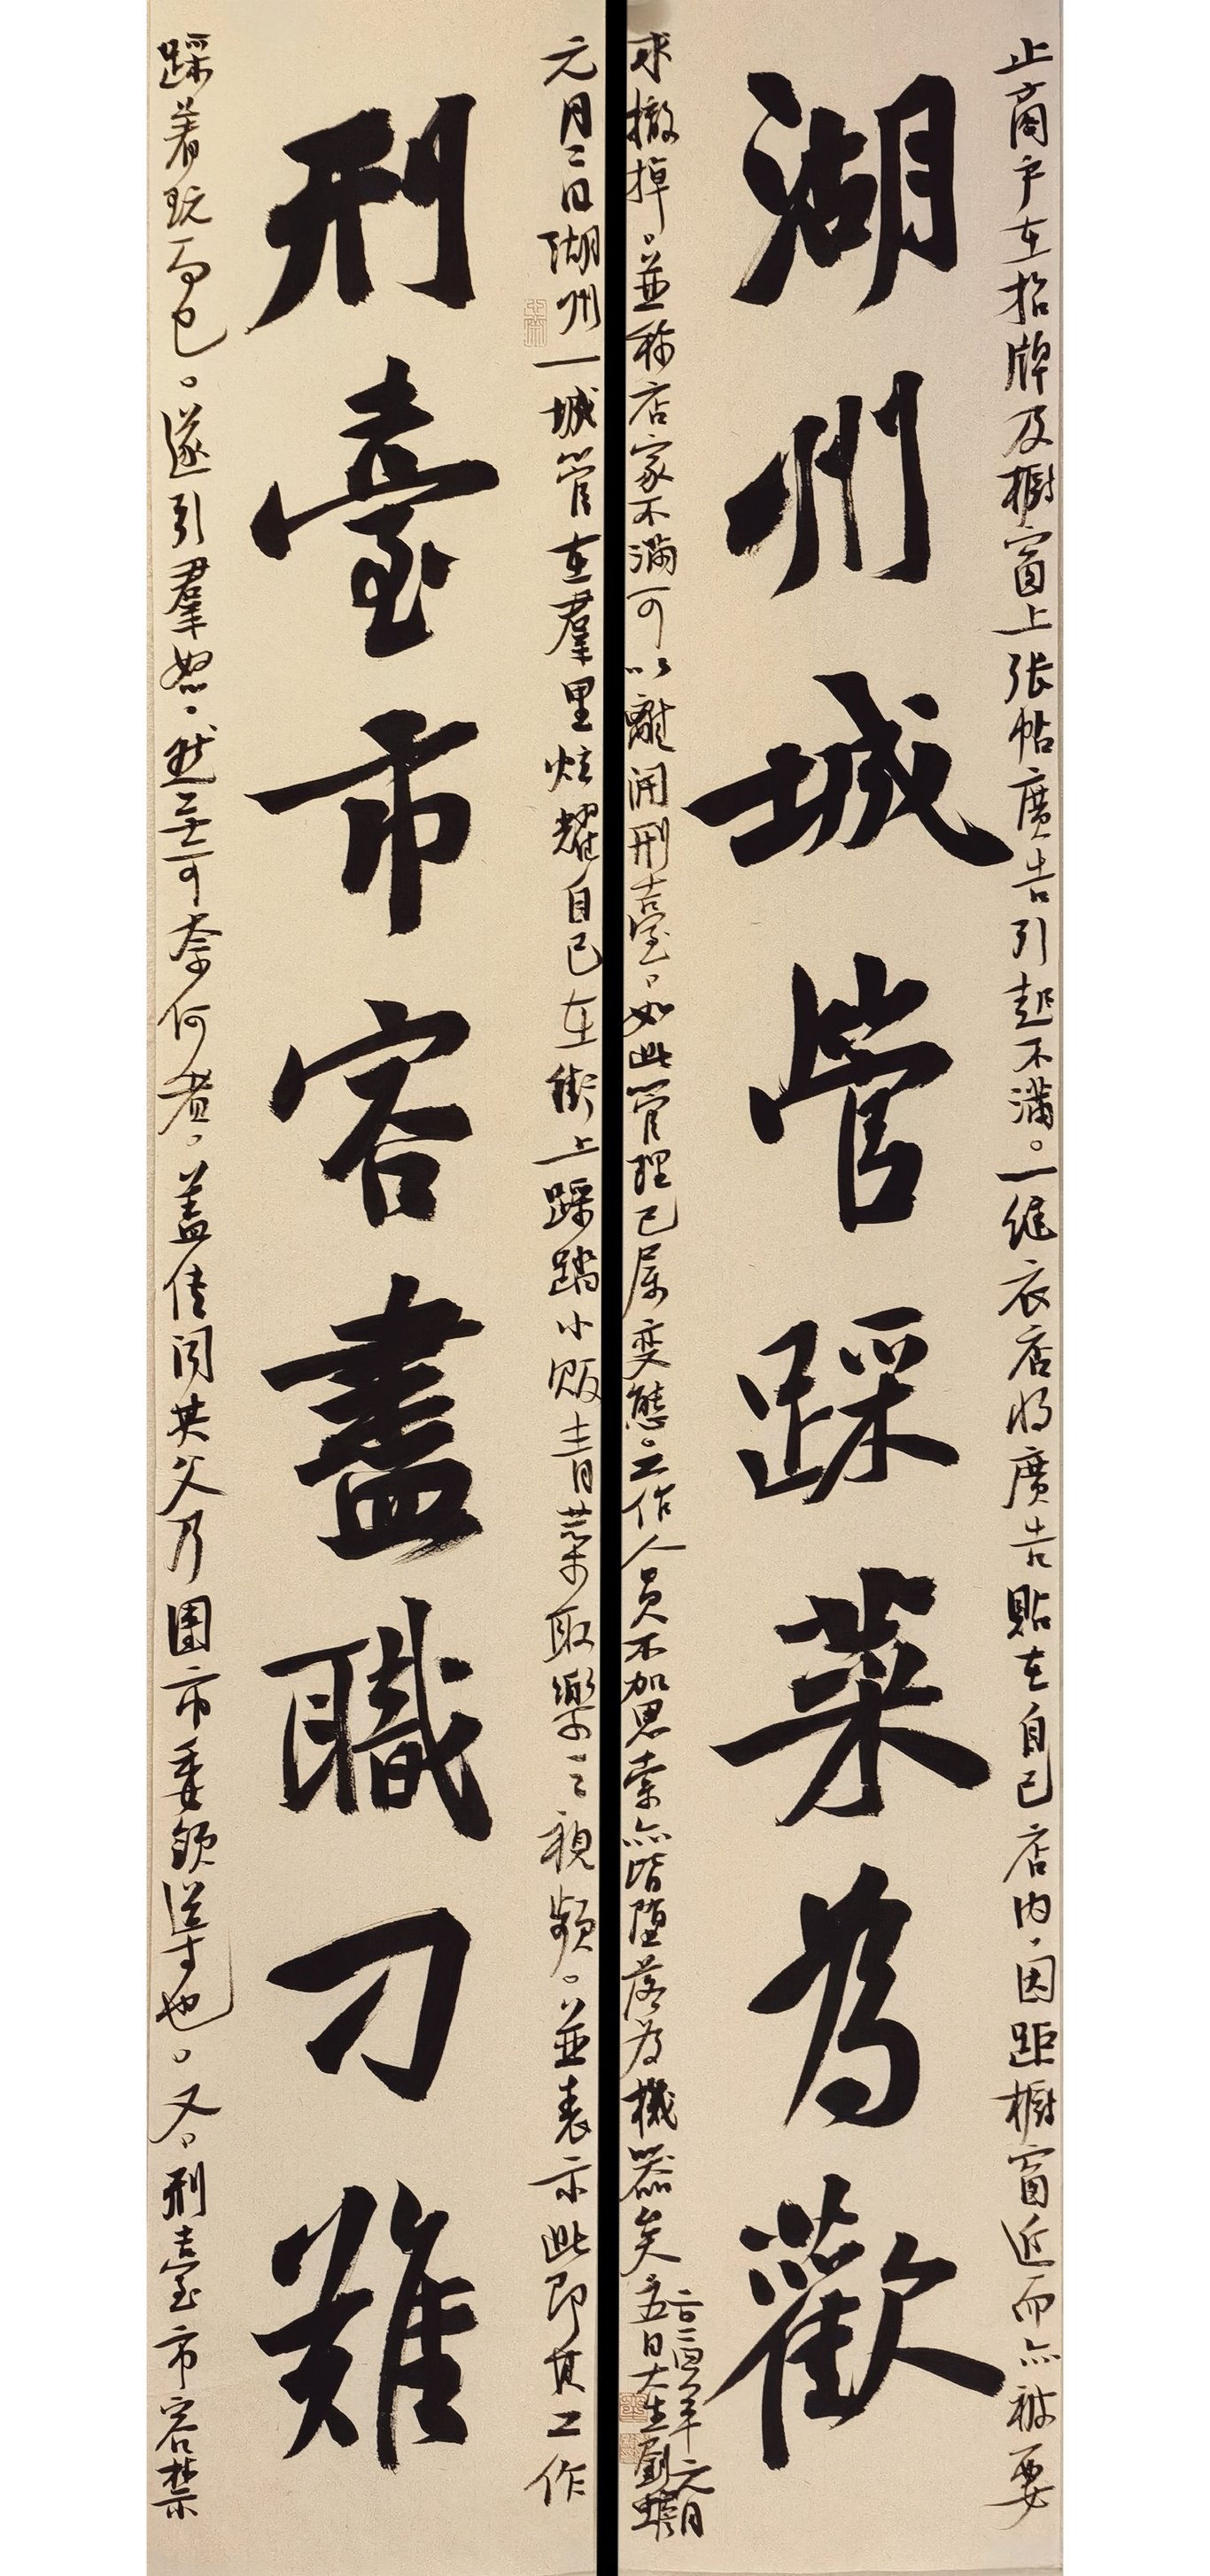 湖州城管踩菜為歡
刑臺市容盡職刁難
元月二日湖州一城管在羣里炫耀自己在街上踩踏小販青菜取樂之視頻。並表示此即其工作
踩着玩而已。遂引羣怒。然無可奈何者。蓋傳聞其父乃團市委領導也。又。刑臺市容禁
止商户在招牌及櫥窗上張帖廣告引起不滿。一縫衣店將廣告貼在自己店内。因距櫥窗近而亦被要
求撤掉。並称店家不滿可以離開刑臺。如此管理已屬变態。工作人員不加思索亦皆墮落為機器矣
二〇二四年元月
五日大生劉